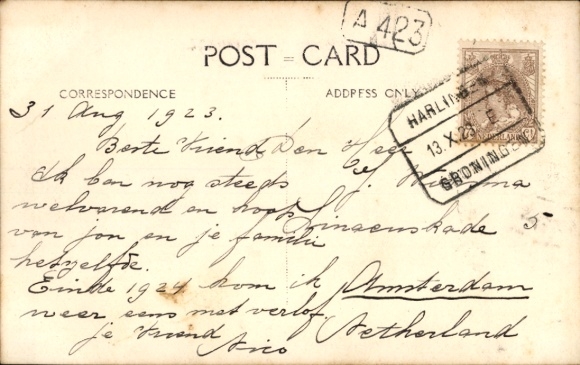 A 423
POST = CARD
CORRESPONDENCE
ADDRESS ONLY
HARLINGEN
13.X.23 E
GRONINGEN
NEDERLAND
31 Aug 1923.
Beste Vriend
Ik ben nog steeds
welvarend en hoop
van jou en je familie
hetzelfde.
Einde 1924 kom ik
weer eens met verlof
je Vriend
Nico
Den Heer
J.
kade 5
Amsterdam
Netherland